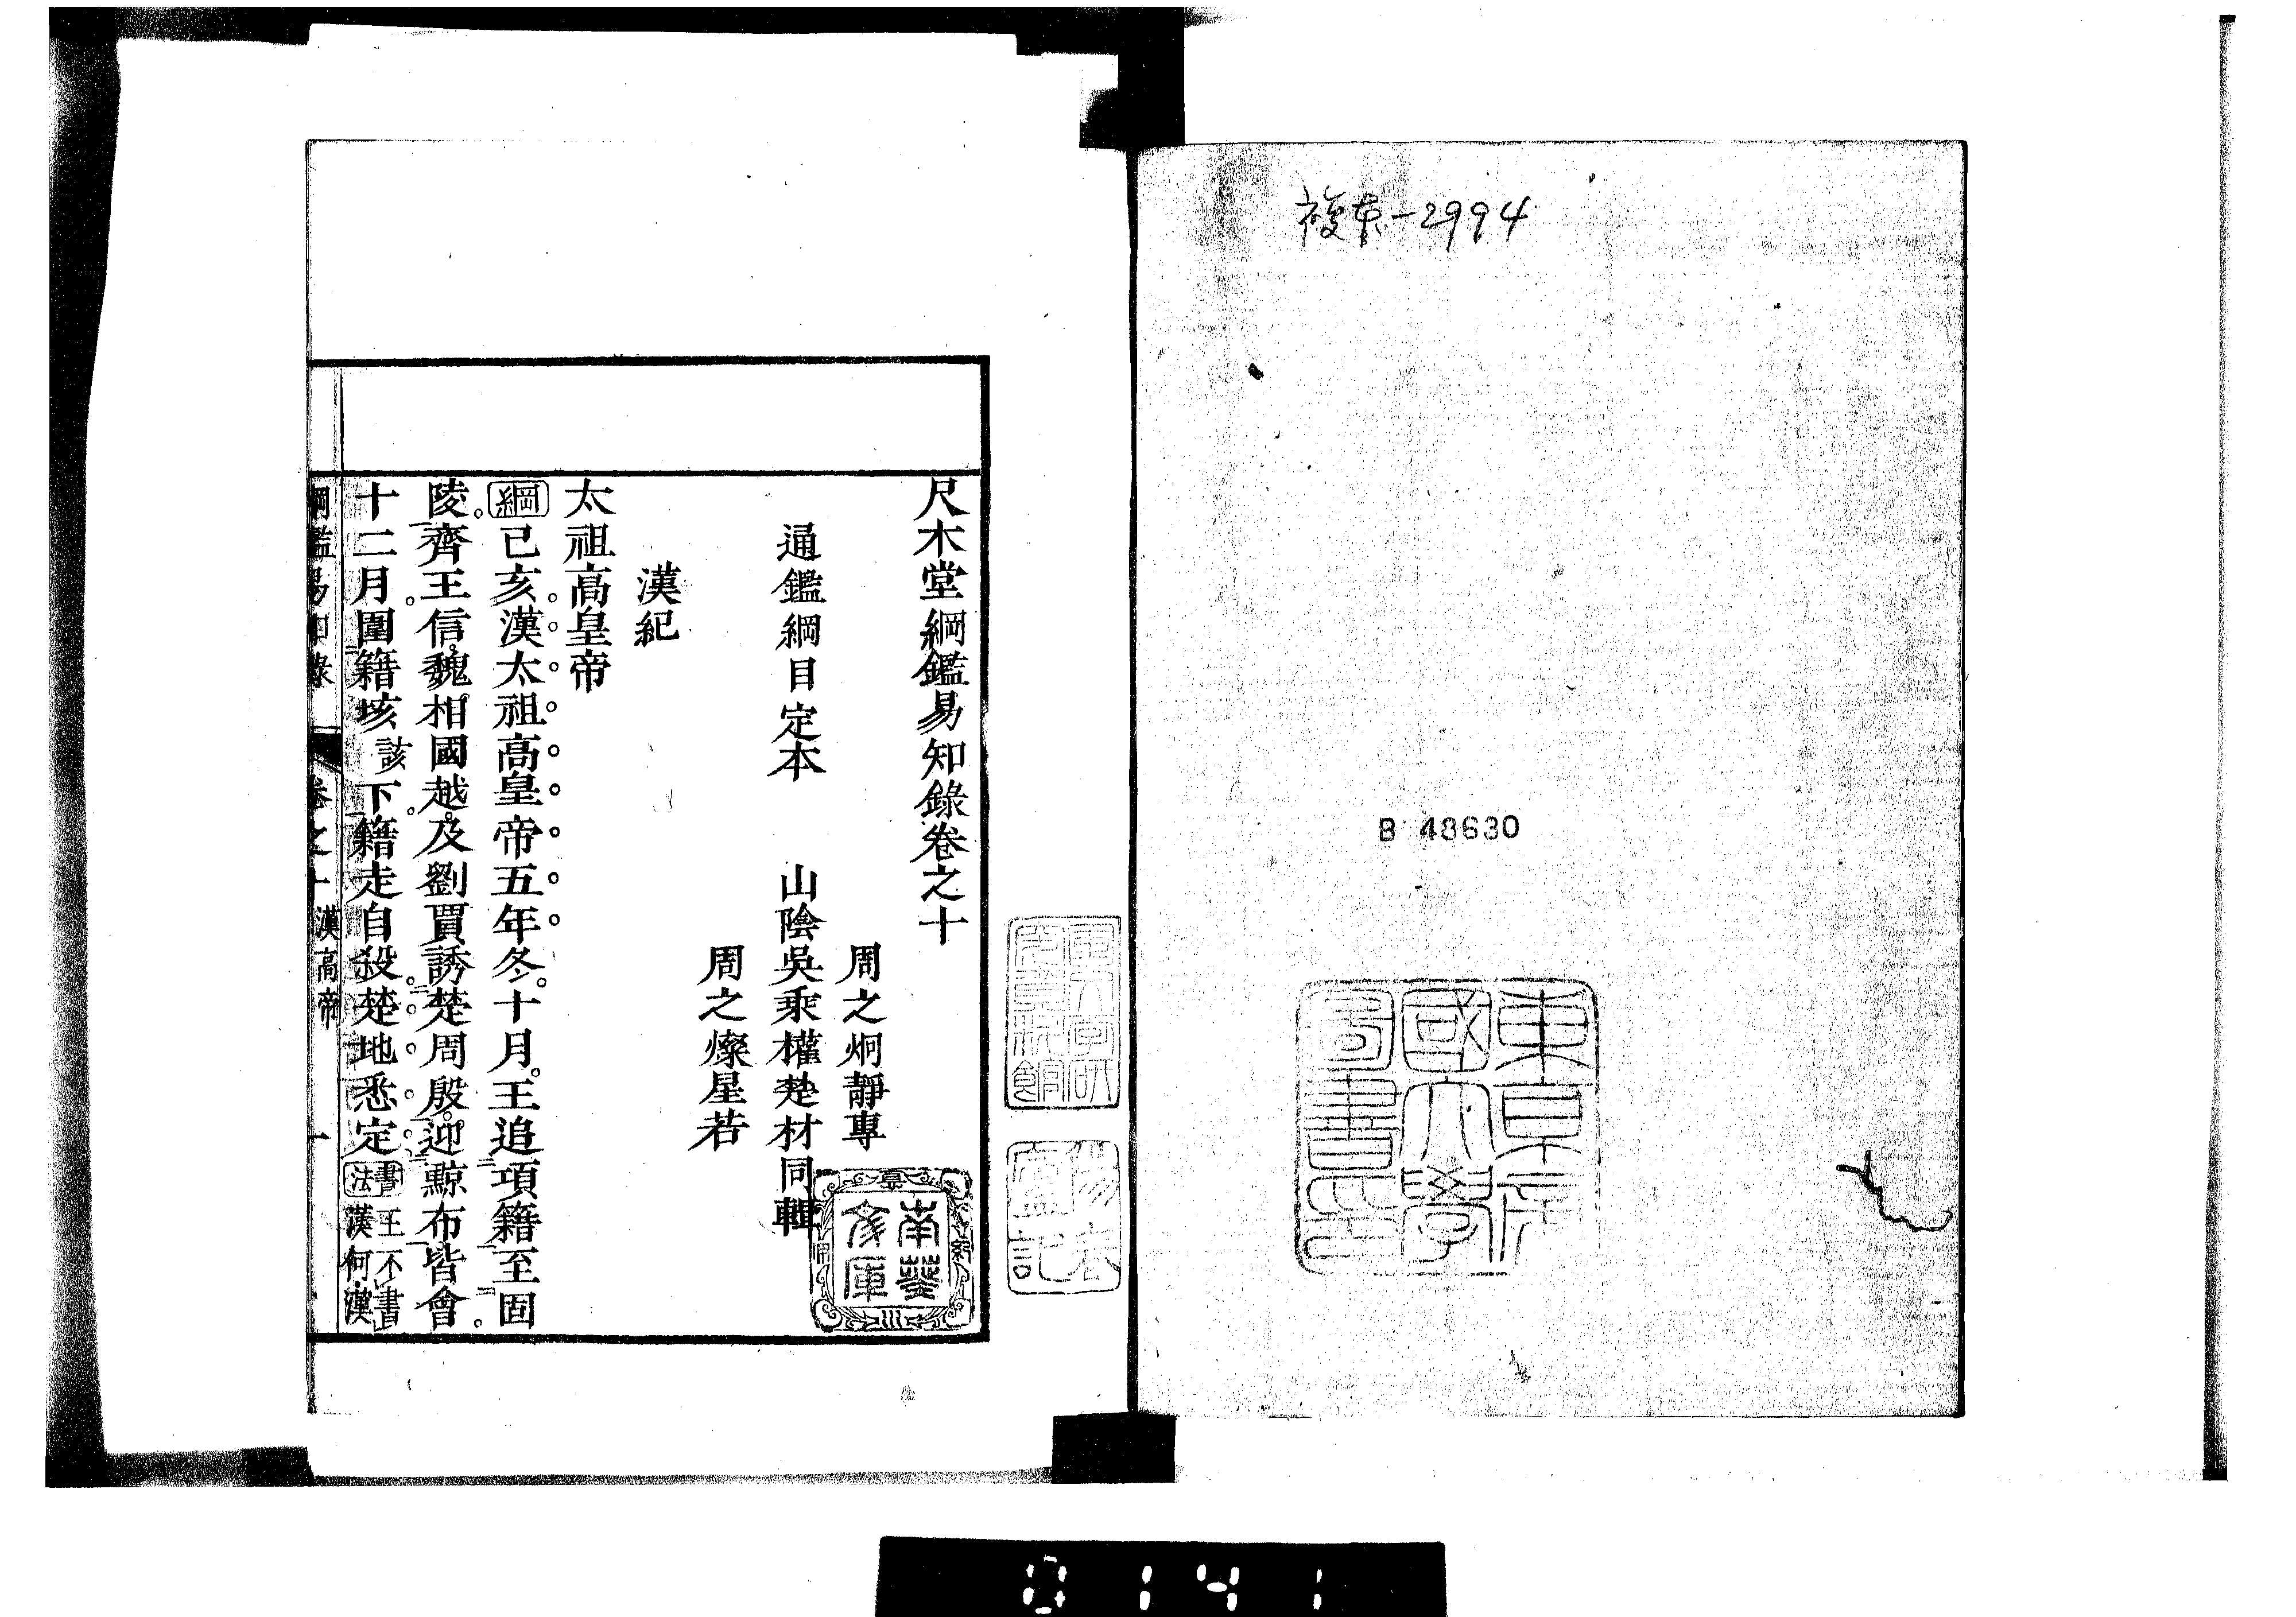 複本-2994
B 48630
東京帝
國大學
圖書印
尺木堂綱鑑易知錄卷之十
周之炯靜專
通鑑綱目定本 山陰吳乘權楚材同輯
周之燦星若
漢紀
太祖高皇帝
綱已亥漢太祖高皇帝五年冬十月王追項籍至固
陵齊王信魏相國越及劉賈誘楚周殷迎黥布皆會
十二月圍籍垓該下籍走自殺楚地悉定書法王不書
漢何漢
綱鑑易知錄 卷之十 漢高帝 一
南葵
文庫
0141